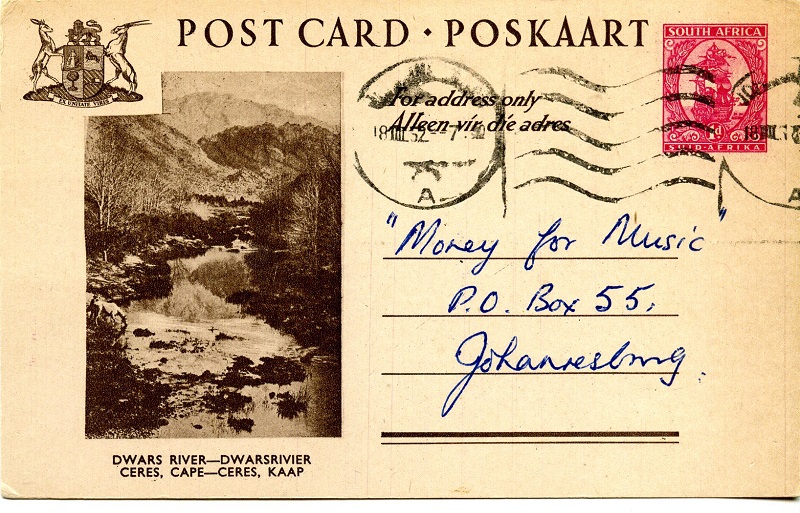 POST CARD · POSKAART
EX UNITATE VIRES
SOUTH AFRICA
1d
SUID-AFRIKA
For address only
Alleen vir die adres
18 VIII 52
A
18 VIII
A
"Money for Music"
P.O. Box 55,
Johannesburg.
DWARS RIVER—DWARSRIVIER
CERES, CAPE—CERES, KAAP